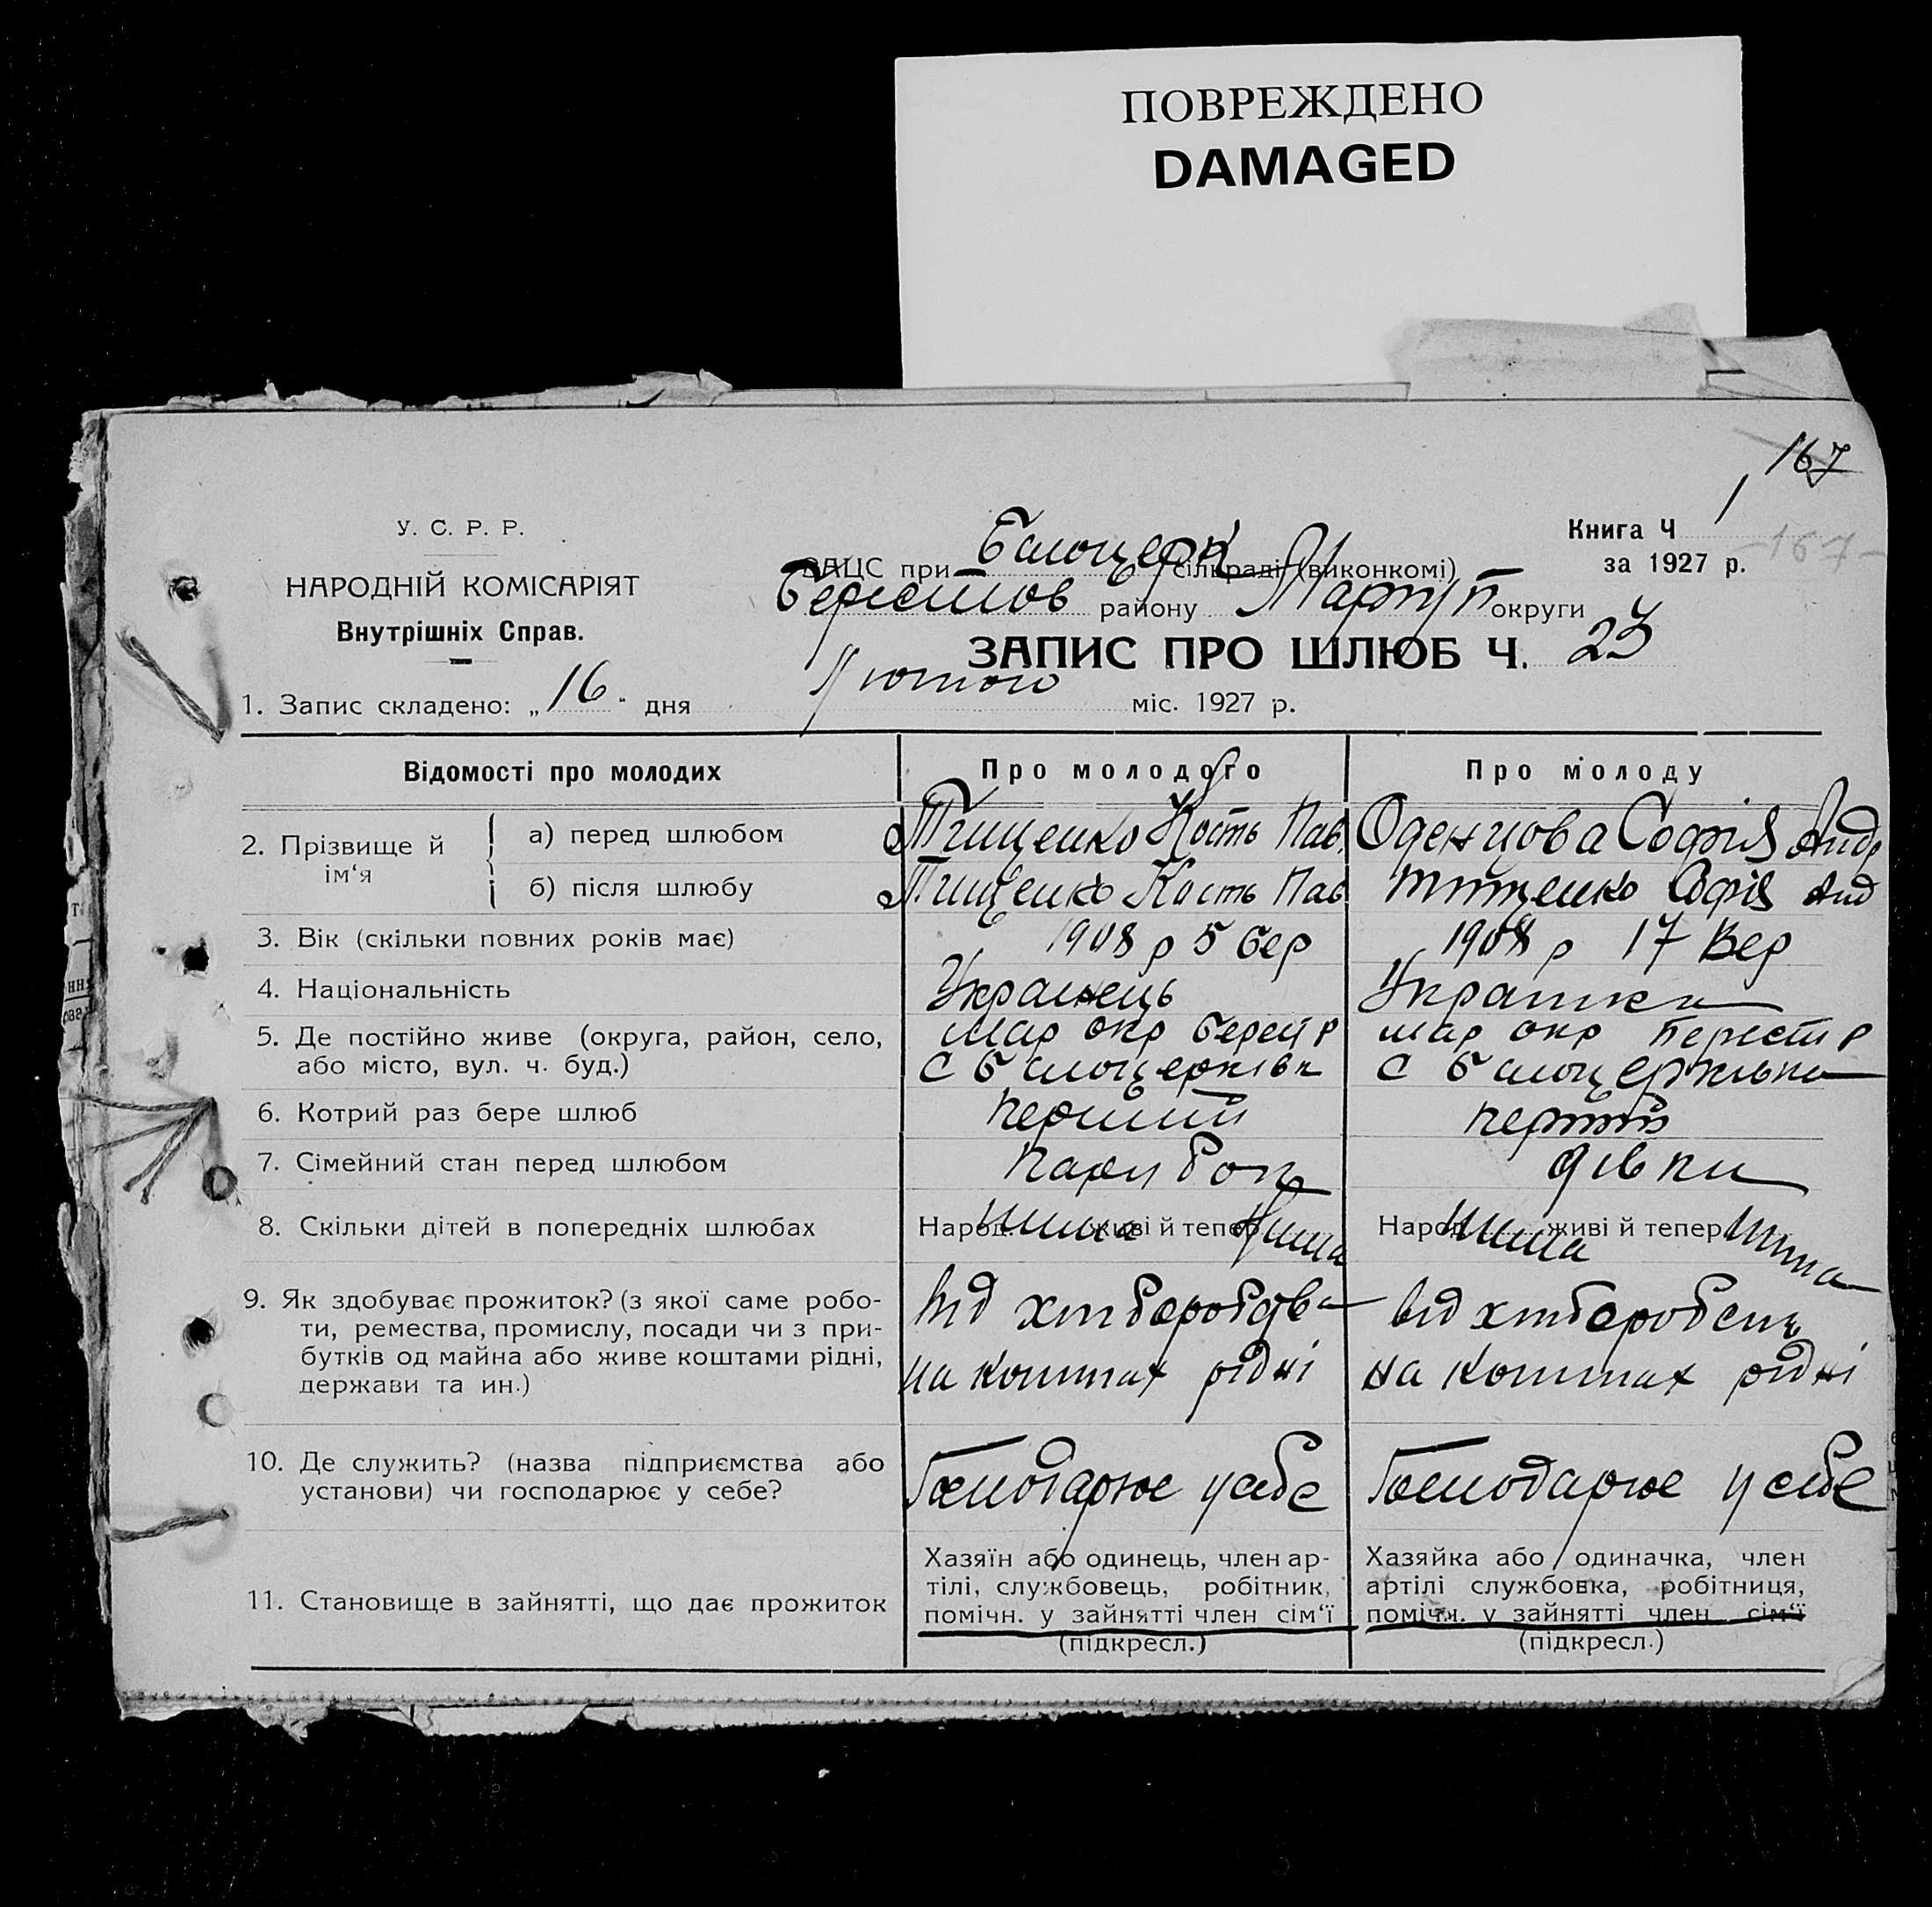 ПОВРЕЖДЕНО
DAMAGED
167
У. С. Р. Р.
НАРОДНІЙ КОМІСАРІЯТ
Внутрішніх Справ.
Книга Ч 1
за 1927 р.
-167-
ЗАЦС при Білоцерк сільраді (виконкомі)
Берестов району Маріуп округи
ЗАПИС ПРО ШЛЮБ Ч. 23
1. Запис складено: „16" дня Лютого міс. 1927 р.
Відомості про молодих Про молодого Про молоду
2. Прізвище й ім'я
а) перед шлюбом Тищенко Кость Пав. Оденцова Софія Андр
б) після шлюбу Тищенко Кость Пав Тищенко Софія Анд
3. Вік (скільки повних років має) 1908 р 5 бер 1908 р 17 Вер
4. Національність Украінець Украінка
5. Де постійно живе (округа, район, село, Мар окр Берест р Мар окр Берест р
або місто, вул. ч. буд.) С Білоцерківка С Білоцерківка
6. Котрий раз бере шлюб перший перший
7. Сімейний стан перед шлюбом парубок дівка
8. Скільки дітей в попередніх шлюбах Народ. Нима живі й тепер Нима Народ. Нима живі й тепер Нима
9. Як здобуває прожиток? (з якої саме робо-
ти, ремества, промислу, посади чи з при-
бутків од майна або живе коштами рідні,
держави та ин.)
Від хліборобства
на коштах рідні
від хлібороб
на коштах рідні
10. Де служить? (назва підприємства або
установи) чи господарює у себе?
Господарює у себе
Господарює у себе
11. Становище в зайнятті, що дає прожиток
Хазяїн або одинець, член ар-
тілі, службовець, робітник,
помічн. у зайнятті член сім'ї
(підкресл.)
Хазяйка або одиначка, член
артілі службовка, робітниця,
помічн. у зайнятті член сім'ї
(підкресл.)